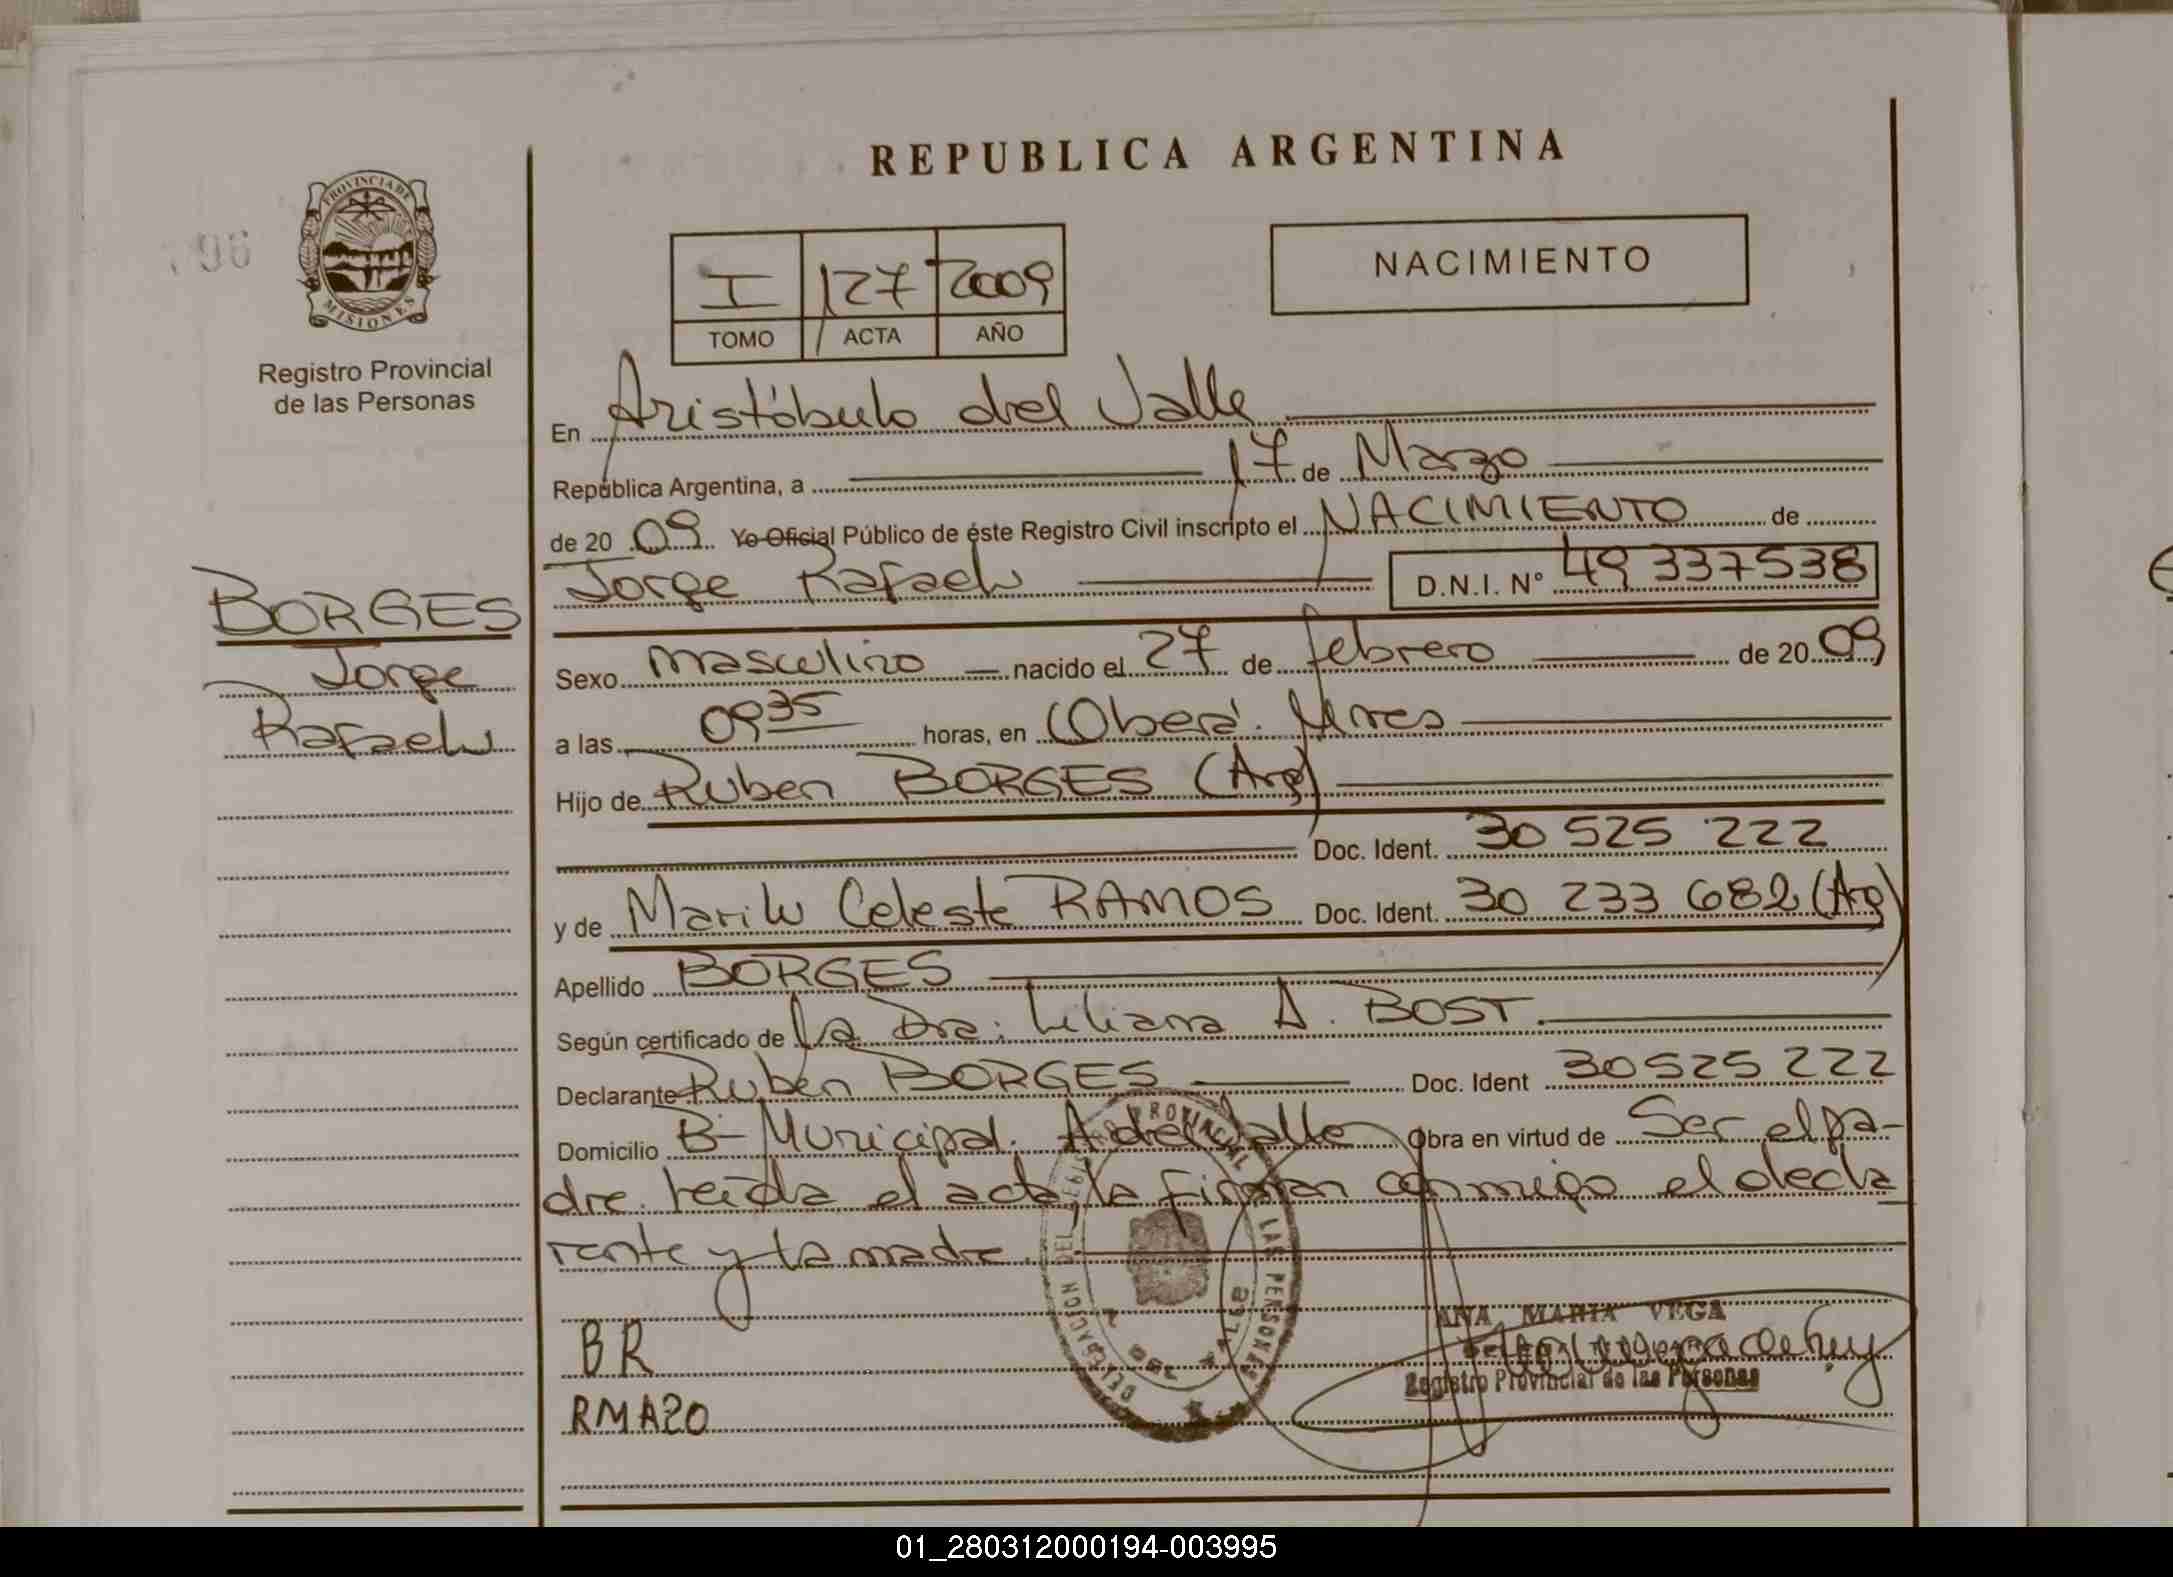 REPUBLICA ARGENTINA
PROVINCIA DE
MISIONES
Registro Provincial
de las Personas
I 127 2009
TOMO ACTA AÑO
NACIMIENTO
En Aristóbulo del Valle
República Argentina, a 17 de Marzo
de 20 09 Yo Oficial Público de éste Registro Civil inscripto el NACIMIENTO de
Jorge Rafael D.N.I. N° 49 337538
BORGES
Jorge
Rafael
Sexo masculino nacido el 27 de febrero de 20 09
a las 09 35 horas, en Oberá. Mnes
Hijo de Ruben BORGES (Arg)
Doc. Ident. 30 525 222
y de Marilu Celeste RAMOS Doc. Ident. 30 233 682 (Arg)
Apellido BORGES
Según certificado de la Dra. Liliana A. BOST.
Declarante Ruben BORGES Doc. Ident 30525 222
Domicilio B- Municipal. A del Valle Obra en virtud de Ser el pa-
dre. Leída el acta la firman conmigo el decla
rante y la madre.
DELEGACION DEL REGISTRO PROVINCIAL LAS PERSONAS
BR
RMA20
ANA MARIA VEGA
Registro Provincial de las Personas
01_280312000194-003995